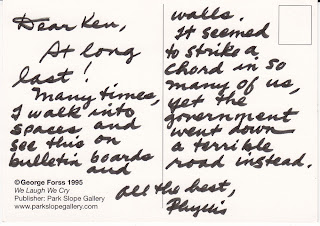 Dear Ken,
At long
last!
Many times,
I walk into
spaces, and
see this on
bulletin boards
and
walls.
It seemed
to strike a
chord in so
many of us,
yet the
government
went down
a terrible
road instead.
All the best,
Phyllis
©George Forss 1995
We Laugh We Cry
Publisher: Park Slope Gallery
www.parkslopegallery.com